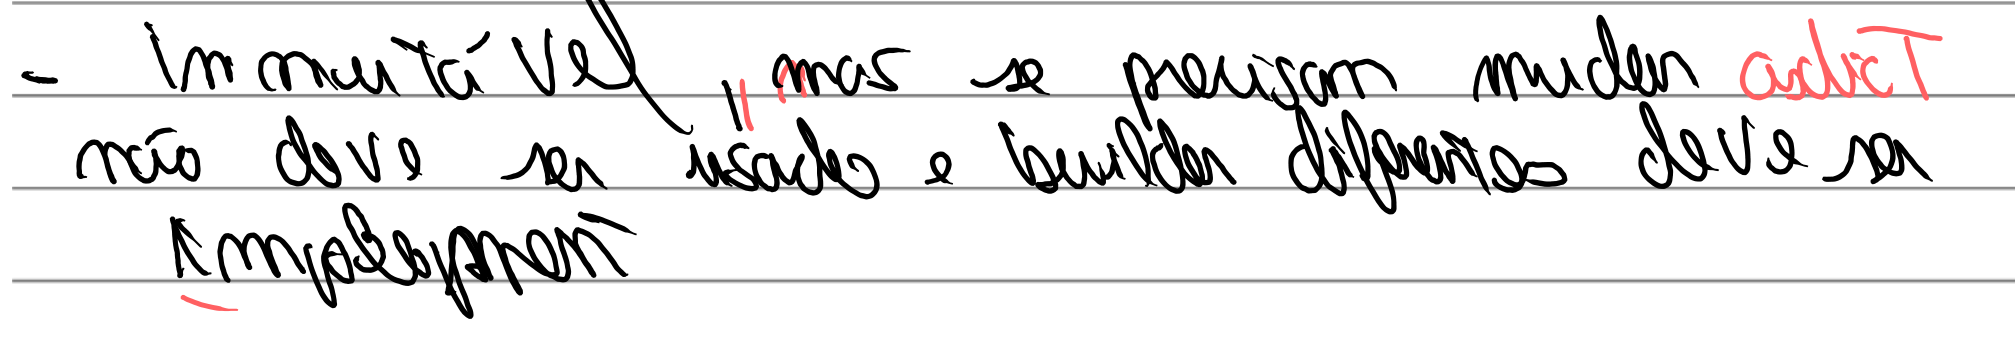 - Immutável, mas se precisam mudar addicT
não deve ser usado e builder diferentes deve ser
Implement